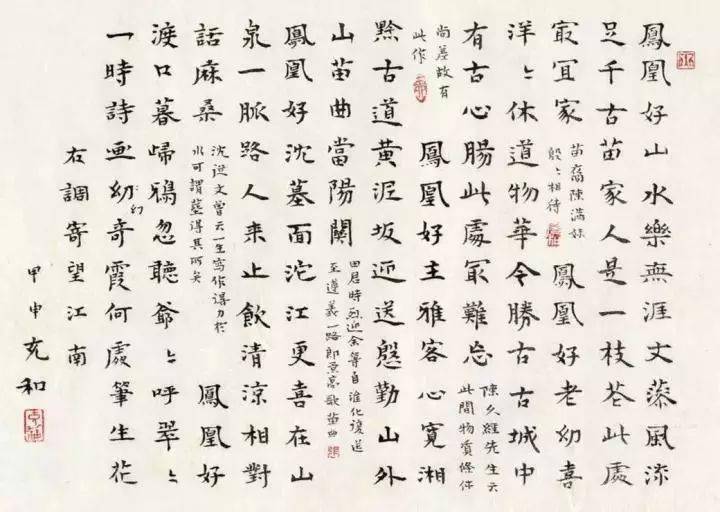 鳳凰好山水樂無涯文藻風流
足千古苗家人是一枝花此處
冣宜家
苗裔陳滿妹
殷〻相待
鳳凰好老幼喜
洋〻休道物華今勝古古城中
有古心腸此處冣難忘
陳久經先生云
此間物質條件
尚差故有
此作
鳳凰好主雅客心寬湘
黔古道黃泥坂迎送慇勤山外
山苗曲當陽關
田君時烈迎余等自淮化復送
至遵義一路郎景高歌苗曲
鳳凰好沈墓面沱江更喜在山
泉一脈路人来止飲清涼相對
話麻桑
沈從文曾云一生寫作得力於
水可謂墓得其所矣
鳳凰好
渡口暮歸鴉忽聽爺〻呼翠〻
一時詩畫幼奇霞何處筆生花
幻
右調寄望江南
甲申充和